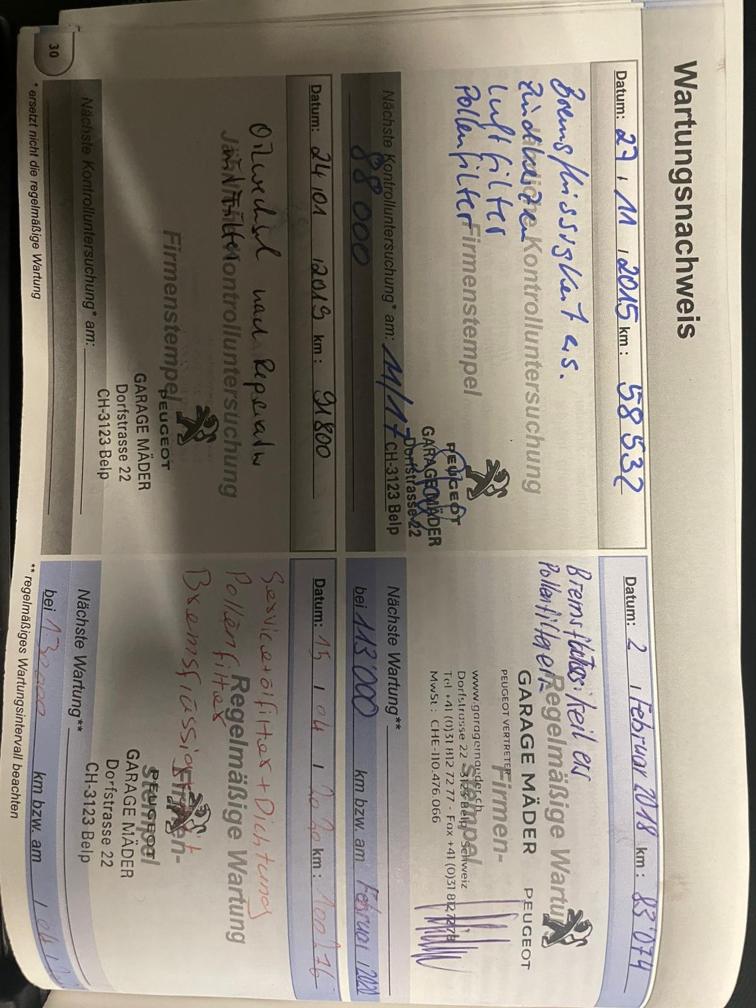 Wartungsnachweis
Datum: 27, 11, 2015 km: 58 532
Bremsflüssigkeit es.
Zündkerzen
Luftfilter
Pollenfilter
Kontrolluntersuchung
Firmenstempel
PEUGEOT
GARAGE MÄDER
Dorfstrasse 22
CH-3123 Belp
Nächste Kontrolluntersuchung* am: 11/17
88 000
Datum: 2, Februar 2018 km: 83'074
Pollenfilter
Regelmäßige Wartung
Firmen-
stempel
GARAGE MÄDER PEUGEOT
PEUGEOT VERTRETER
www.garagemaeder.ch
Dorfstrasse 22 - 3123 Belp - Schweiz
Tel +41 (0)31 812 72 77 - Fax +41 (0)31 812 72 78
MwSt.: CHE-110.476.066
Nächste Wartung**
bei 113'000 km bzw. am Februar
Datum: 24, 01, 2019 km: 91 800
Oilwechsel nach
Kontrolluntersuchung
Firmenstempel
PEUGEOT
GARAGE MÄDER
Dorfstrasse 22
CH-3123 Belp
Nächste Kontrolluntersuchung* am:
Datum: 15, 04, 2020 km: 100276
Service+ölfilter+Dichtung
Pollenfilter
Bremsflüssigkeit
Regelmäßige Wartung
Firmen-
stempel
PEUGEOT
GARAGE MÄDER
Dorfstrasse 22
CH-3123 Belp
Nächste Wartung**
bei 130000 km bzw. am
* ersetzt nicht die regelmäßige Wartung
** regelmäßiges Wartungsintervall beachten
30